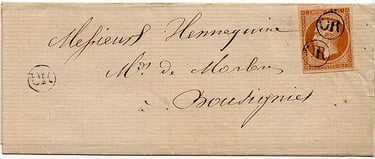 OR
Messieurs Hennequin
OR
Mds de Marbres
OR
à Bousignies